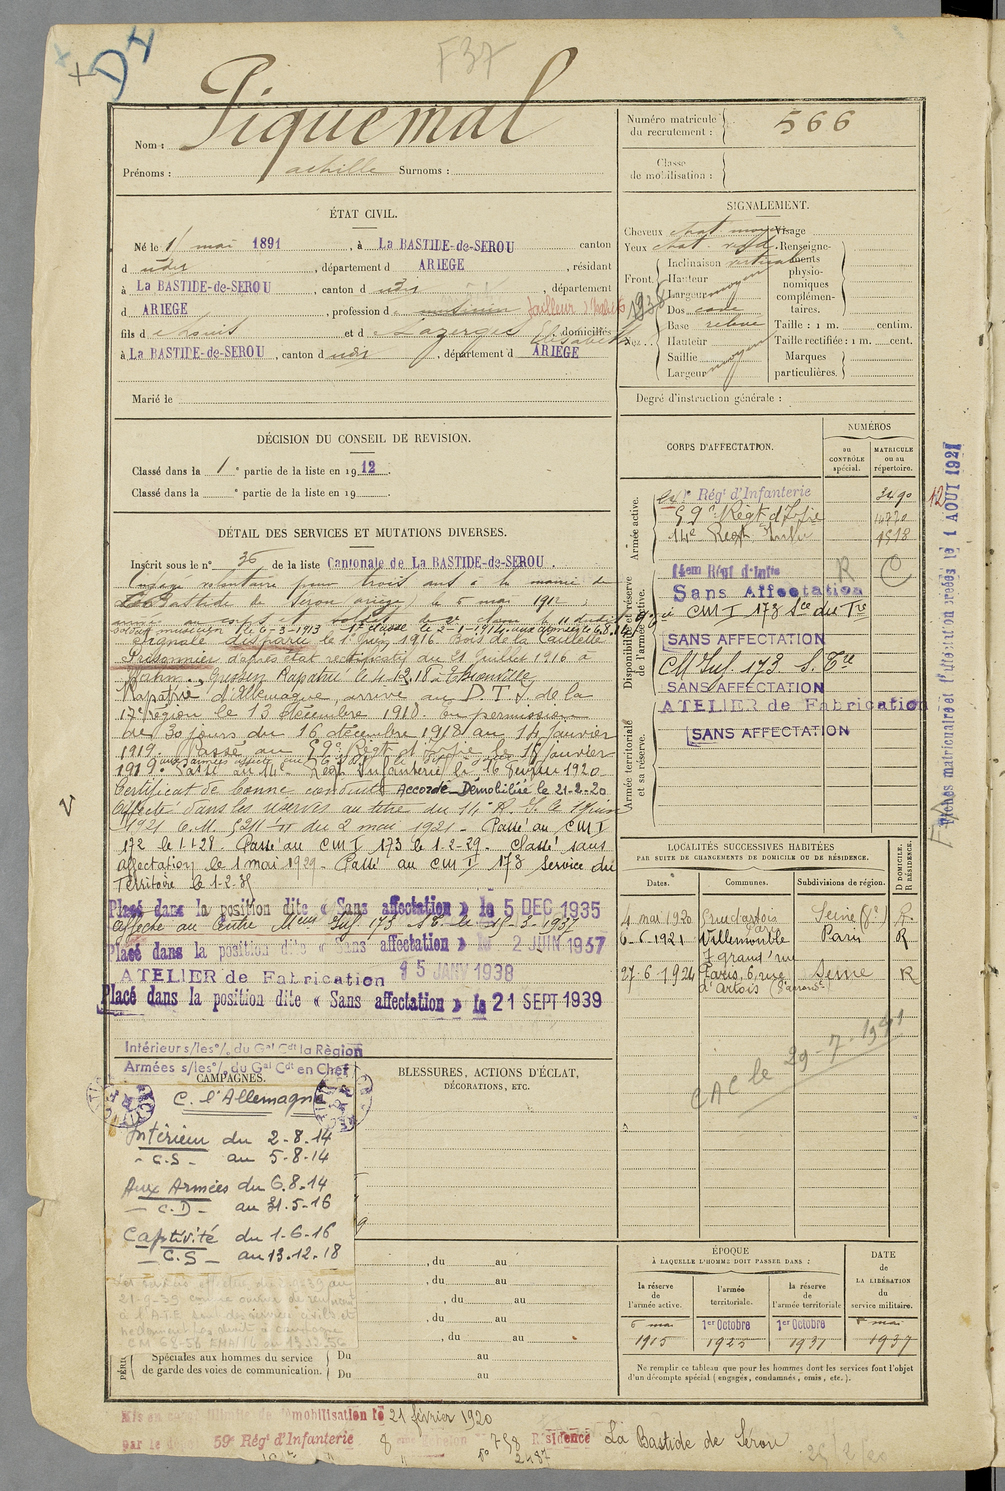 D4
F37
Nom : Piquemal
Prénoms : achille Surnoms :
Numéro matricule du recrutement : 566
Classe de mobilisation :
ÉTAT CIVIL.
Né le 1 mai 1891, à La BASTIDE-de-SEROU canton
d udis, département d ARIEGE, résidant
à La BASTIDE-de-SEROU, canton d udis, département
d ARIEGE, profession d musicien tailleur d'habits 1938
fils d et d Lazerges Elisabeth domiciliés
à La BASTIDE-de-SEROU, canton d udis, département d ARIEGE
Marié le
SIGNALEMENT.
Cheveux chat moyen Visage
Yeux chat. Renseigne-
Front Inclinaison verticale ments
Hauteur physio-
Largeur moyen nomiques
complémen-
Dos cave taires.
Base relevée Taille : 1 m. centim.
Nez Hauteur Taille rectifiée : 1 m. cent.
Saillie Marques
Largeur moyen particulières.
Degré d'instruction générale :
DÉCISION DU CONSEIL DE REVISION.
Classé dans la 1e partie de la liste en 1912.
Classé dans la e partie de la liste en 19 .
DÉTAIL DES SERVICES ET MUTATIONS DIVERSES.
Inscrit sous le n° 36 de la liste Cantonale de La BASTIDE-de-SEROU.
Engagé volontaire pour trois ans à la mairie de
La Bastide de Serou ariège, le 6 mai 1912,
soldat musicien le 6-3-1913 1e classe le 2-1-1914. aux armées le 6.8.14
Signalé disparu le 1er Juin 1916 Bois de la Caillette
Prisonnier d'après état rectificatif au 21 Juillet 1916 à
Hahn, Gussen Rapatrié le 4.12.18 à Thionville
Rapatrié d'Allemagne, arrivé au D.T.I. de la
17e région le 13 décembre 1918. En permission
de 30 jours du 16 décembre 1918 au 14 janvier
1919. Passé au 59e Régt d'Infie le 15 Janvier
1919. Passé au 14e Régt Infanterie le 16 février 1920
Certificat de bonne conduite ACCORDÉ Démobilisé le 21-2-20
Affecté dans les réserves au titre du 14e R. I. le 1 Juin
1921 C.M. 5211 /11 du 2 mai 1921 - Passé au CMI
172 le 1.1.28. Passé au CMI 173 le 1-2-29. Classé sans
affectation le 1 mai 1929 - Passé au CM II 173 Service du
Territoire le 1-2-35
Placé dans la position dite « Sans affectation » le 5 DEC 1935
Affecté au Centre Mque Inf. 173
Placé dans la position dite « Sans affectation » le 2 JUIN 1937
ATELIER de Fabrication 15 JANV 1938
Placé dans la position dite « Sans affectation » le 21 SEPT 1939
CORPS D'AFFECTATION.
NUMÉROS
au CONTRÔLE spécial.
MATRICULE ou au répertoire.
Armée active.
Rég' d'Infanterie 3490
59e Régt d'Infie 14720
14e Régt Infie 1518
Disponibilité et réserve de l'armée active.
14em Régt d'Infie R C
Sans Affectation
CM I 173 Sce du Tre
SANS AFFECTATION
CM Inf. 173 S. Tre
SANS AFFECTATION
ATELIER de Fabrication
Armée territoriale et sa réserve.
SANS AFFECTATION
Fiches matriculaire et d'affectation créées le 1 AOUT 1921
LOCALITÉS SUCCESSIVES HABITÉES
PAR SUITE DE CHANGEMENTS DE DOMICILE OU DE RÉSIDENCE.
Dates. Communes. Subdivisions de région. D DOMICILE. R RÉSIDENCE.
4 mai 1920 6 rue d'artois Paris Seine R
6-6-1921 Villemomble Paris R
7 grand'rue
27-6-1924 Paris, 6, rue Seine R
d'Artois
CAC le 29-7-1941
Intérieur s/les °/. du Gal Cdt la Règion
Armées s/les °/. du Gal Cdt en Chef
CAMPAGNES.
C. l'Allemagne
Intérieur du 2-8-14
- C.S - au 5-8-14
Aux Armées du 6.8.14
- C.D - au 31.5-16
Captivité du 1-6-16
- C.S - au 13.12.18
BLESSURES, ACTIONS D'ÉCLAT,
DÉCORATIONS, ETC.
, du au
, du au
, du au
, du au
, du au
Spéciales aux hommes du service
de garde des voies de communication.
Du au
Du au
ÉPOQUE
À LAQUELLE L'HOMME DOIT PASSER DANS :
DATE de LA LIBÉRATION du service militaire.
la réserve de l'armée active.
l'armée territoriale.
la réserve de l'armée territoriale
6 mai 1er Octobre 1er Octobre 6 mai
1915 1925 1931 1937
Ne remplir ce tableau que pour les hommes dont les services font l'objet
d'un décompte spécial (engagés, condamnés, omis, etc.).
Mis en congé illimité de démobilisation le 21 février 1920
par le dépôt 59e Rég' d'Infanterie 8 échelon n° 758 Résidence La Bastide de Sérou
2437